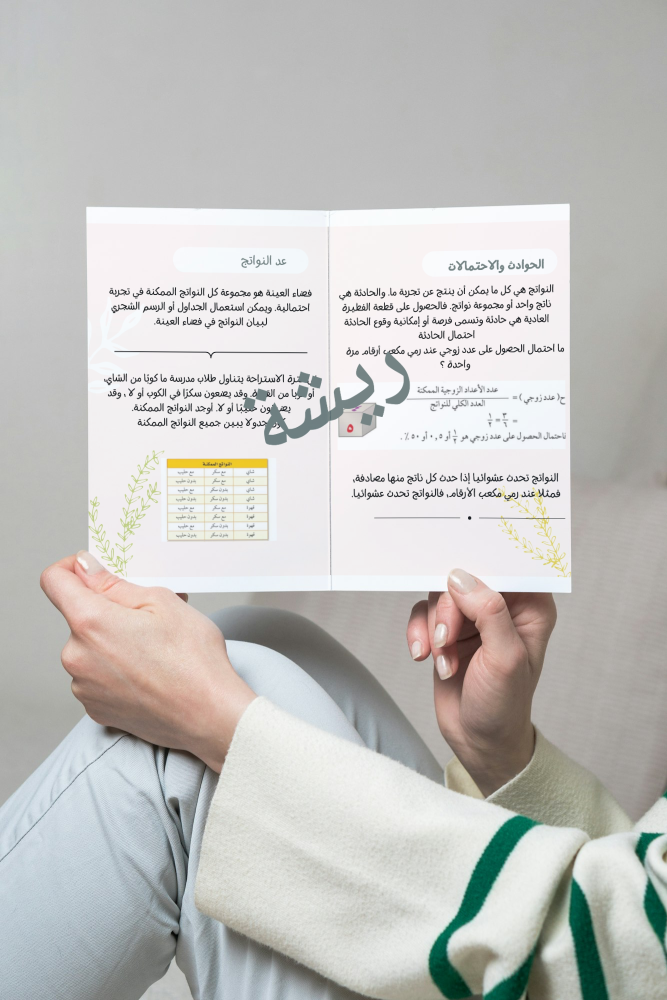 الحوادث والاحتمالات
النواتج هي كل ما يمكن أن ينتج عن تجربة ما. والحادثة هي
ناتج واحد أو مجموعة نواتج. فالحصول على قطعة الفطيرة
العادية هي حادثة وتسمى فرصة أو إمكانية وقوع الحادثة
احتمال الحادثة
ما احتمال الحصول على عدد زوجي عند رمي مكعب أرقام مرة
واحدة ؟
ح( عدد زوجي ) = عدد الأعداد الزوجية الممكنة / العدد الكلي للنواتج
= ٣/٦ = ١/٢
فاحتمال الحصول على عدد زوجي هو ١/٢ أو ٠,٥ أو ٥٠٪ .
٥
النواتج تحدث عشوائيا إذا حدث كل ناتج منها مصادفة,
فمثلا عند رمي مكعب الأرقام, فالنواتج تحدث عشوائيا.
عد النواتج
فضاء العينة هو مجموعة كل النواتج الممكنة في تجربة
احتمالية. ويمكن استعمال الجداول أو الرسم الشجري
لبيان النواتج في فضاء العينة.
فترة الاستراحة يتناول طلاب مدرسة ما كوبًا من الشاي,
أو كوبًا من القهوة. وقد يضعون سكرًا في الكوب أو لا ، وقد
يضعون حليبًا أو لا. أوجد النواتج الممكنة.
جدولا يبين جميع النواتج الممكنة
النواتج الممكنة
شاي مع سكر مع حليب
شاي مع سكر بدون حليب
شاي بدون سكر مع حليب
شاي بدون سكر بدون حليب
قهوة مع سكر مع حليب
قهوة مع سكر بدون حليب
قهوة بدون سكر مع حليب
قهوة بدون سكر بدون حليب
ريشة